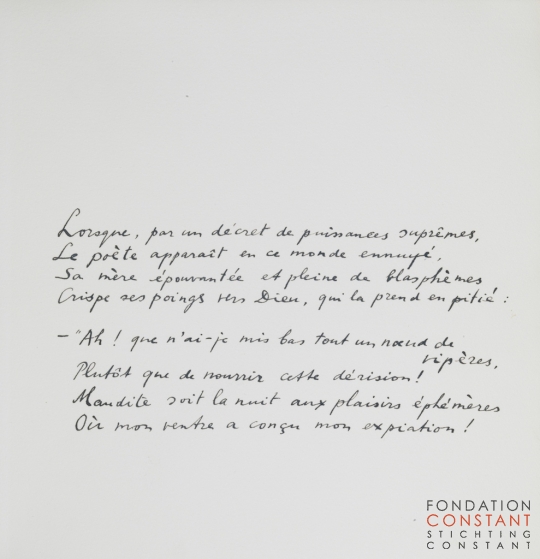 Lorsque, par un décret de puissances suprêmes,
Le poète apparaît en ce monde ennuyé,
Sa mère épouvantée et pleine de blasphèmes
Crispe ses poings vers Dieu, qui la prend en pitié :
— "Ah ! que n'ai-je mis bas tout un nœud de
vipères,
Plutôt que de nourrir cette dérision !
Maudite soit la nuit aux plaisirs éphémères
Où mon ventre a conçu mon expiation !
FONDATION
CONSTANT
STICHTING
CONSTANT